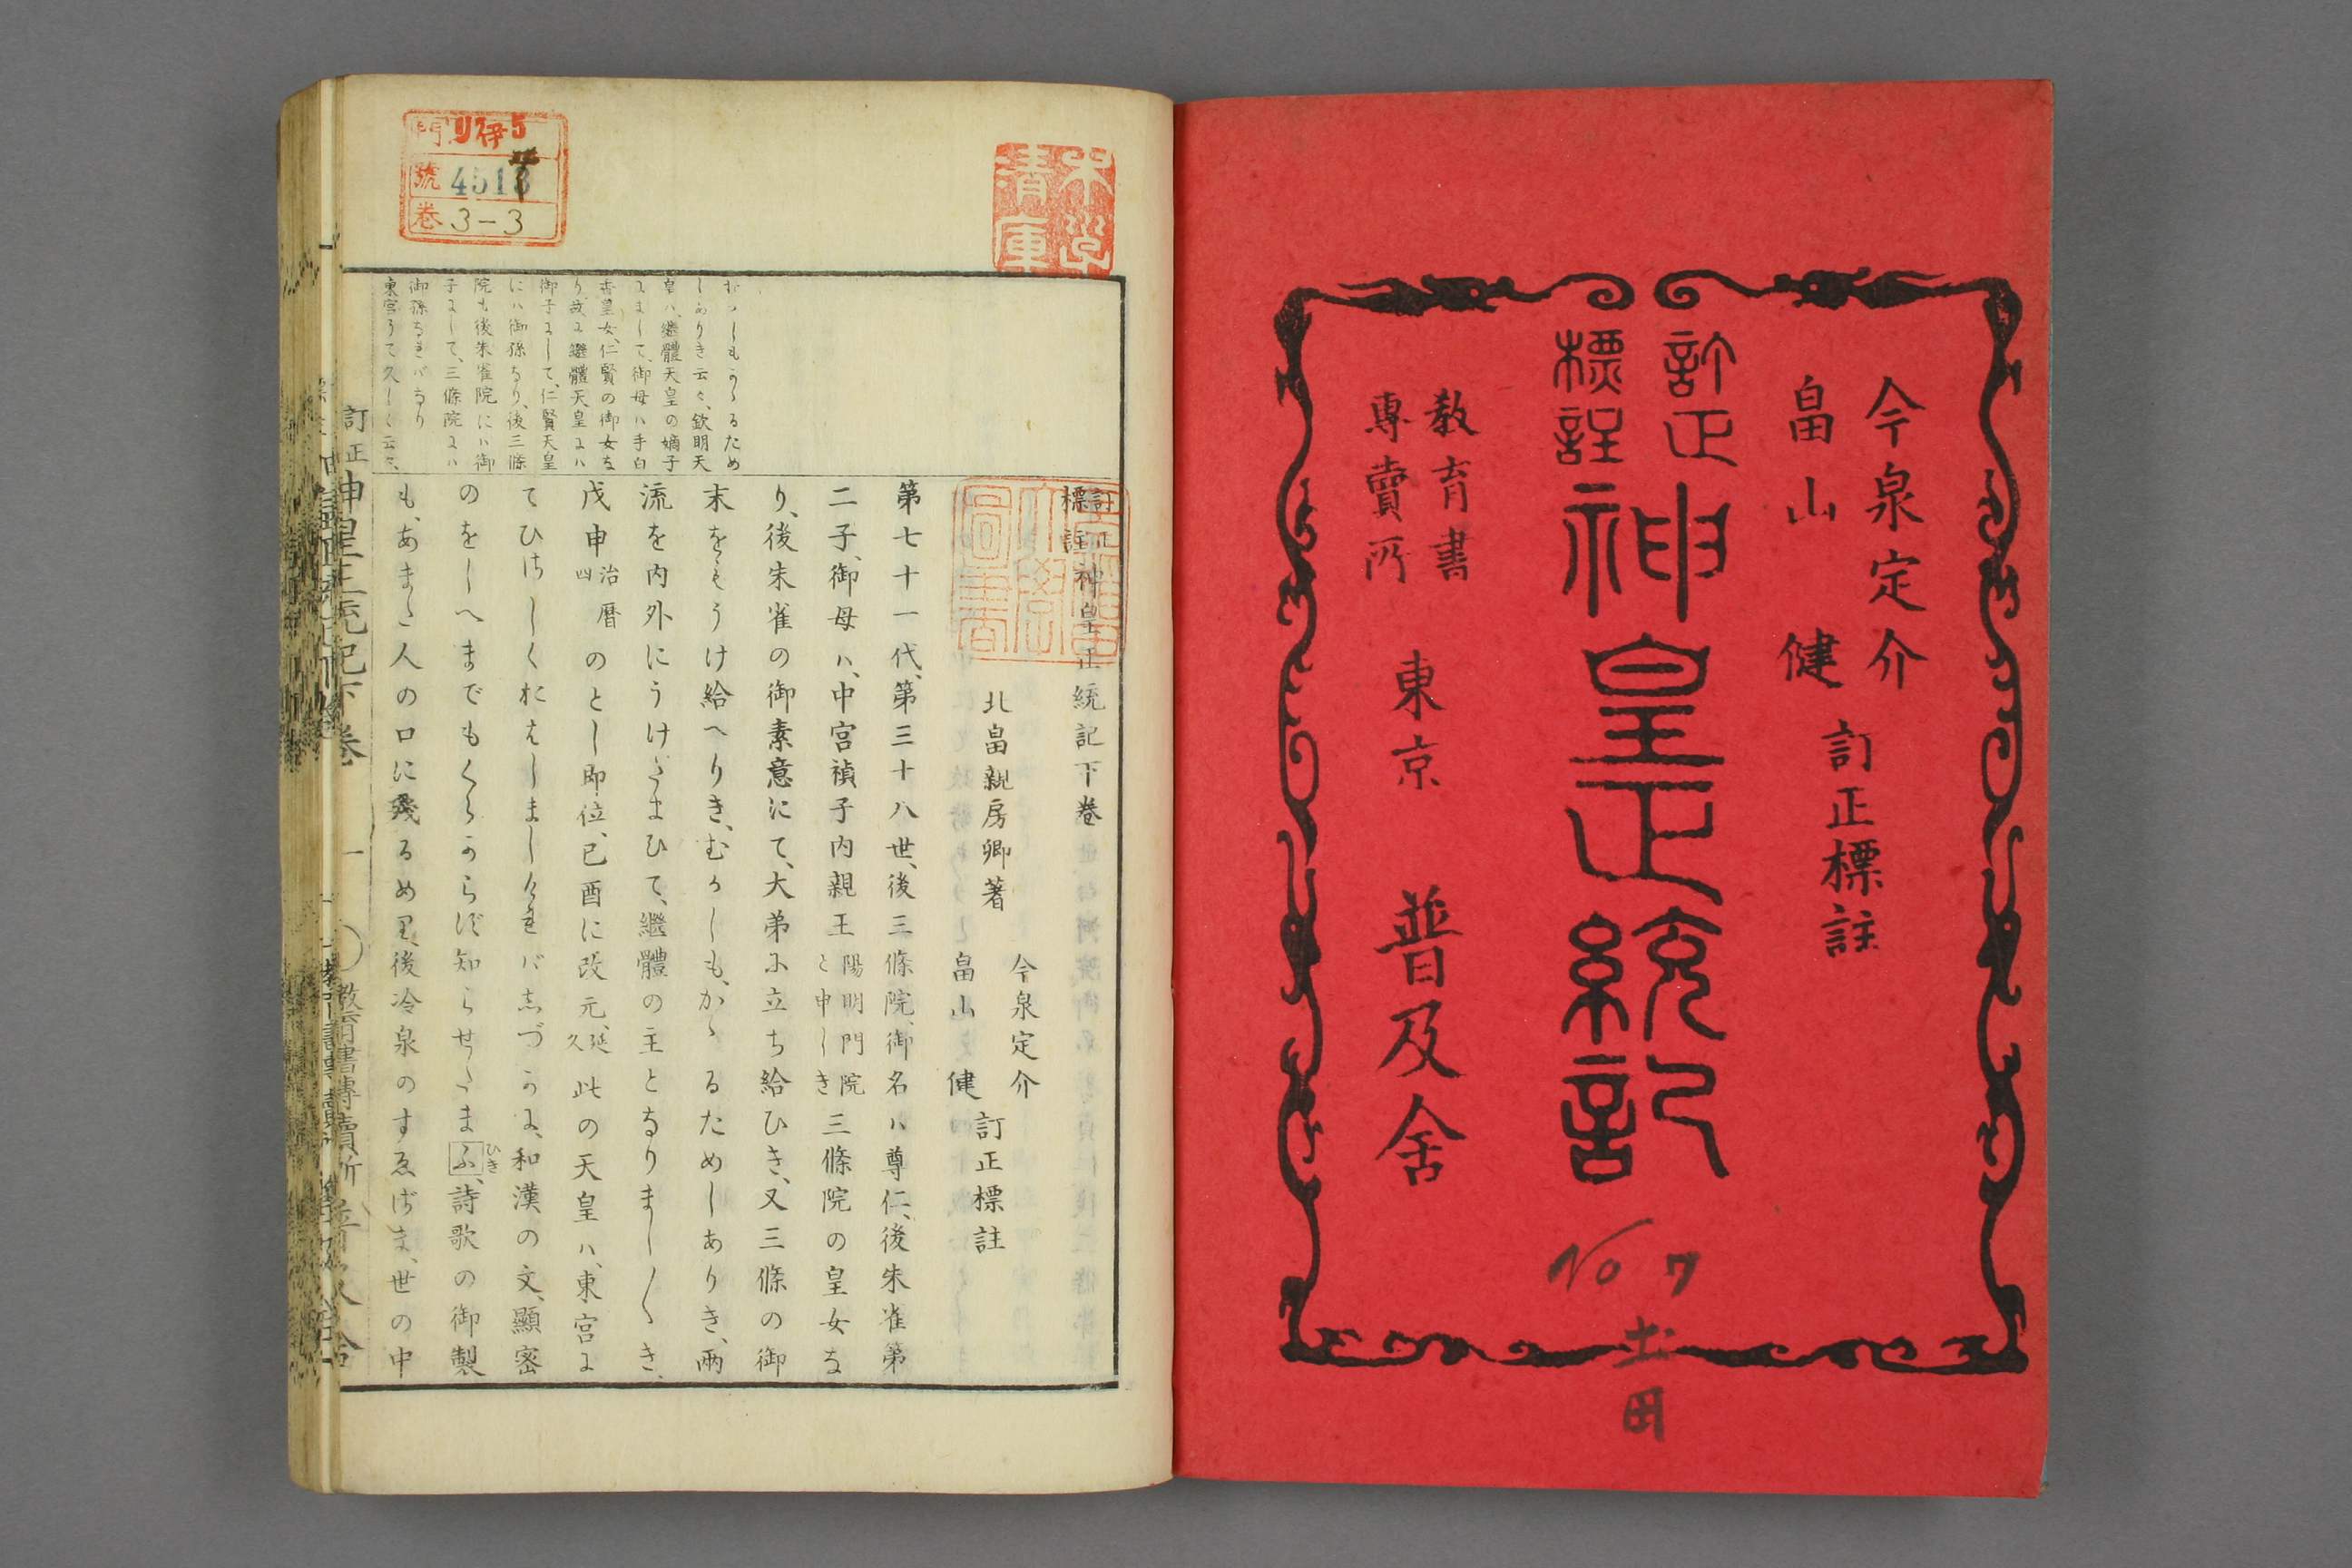 今泉定介
畠山健
訂正標註
訂正
標註
神皇正統記
教育書
專賣所
東京 普及舍
No 7
土田
門 リ伊5
號 4513
卷 3-3
訂正
標註
神皇正統記下卷
北畠親房卿著
今泉定介
畠山健
訂正標註
第七十一代、第三十八世、後三條院、御名ハ尊仁、後朱雀第
二子、御母ハ、中宮禎子内親王陽明門院と申しき三條院の皇女な
り、後朱雀の御素意にて、大弟に立ち給ひき、又三條の御
末をもうけ給へりき、むかしも、かゝるためしありき、兩
流を内外にうけたまひて、繼體の主となりまし〱き、
戊申治暦四のとし即位、己酉に改元、延久此の天皇ハ、東宮に
てひさしくおはしましければ、しづかに、和漢の文、顯密
のをしへまでもくらからず知らせたまふ、詩歌の御製
ひき
も、あまた人の口に殘るめり、後冷泉のすゑざま、世の中
むかしもかゝるため
しありき云々、欽明天
皇ハ、繼體天皇の嫡子
にまして、御母ハ手白
香皇女、仁賢の御女な
り、故に繼體天皇にハ
御子にして、仁賢天皇
にハ御孫なり、後三條
院も後朱雀院にハ御
子にして、三條院にハ
御孫なれバなり
東宮にて久しく云々、
訂正
神皇正統記下卷
一
教育書專賣所 普及舍